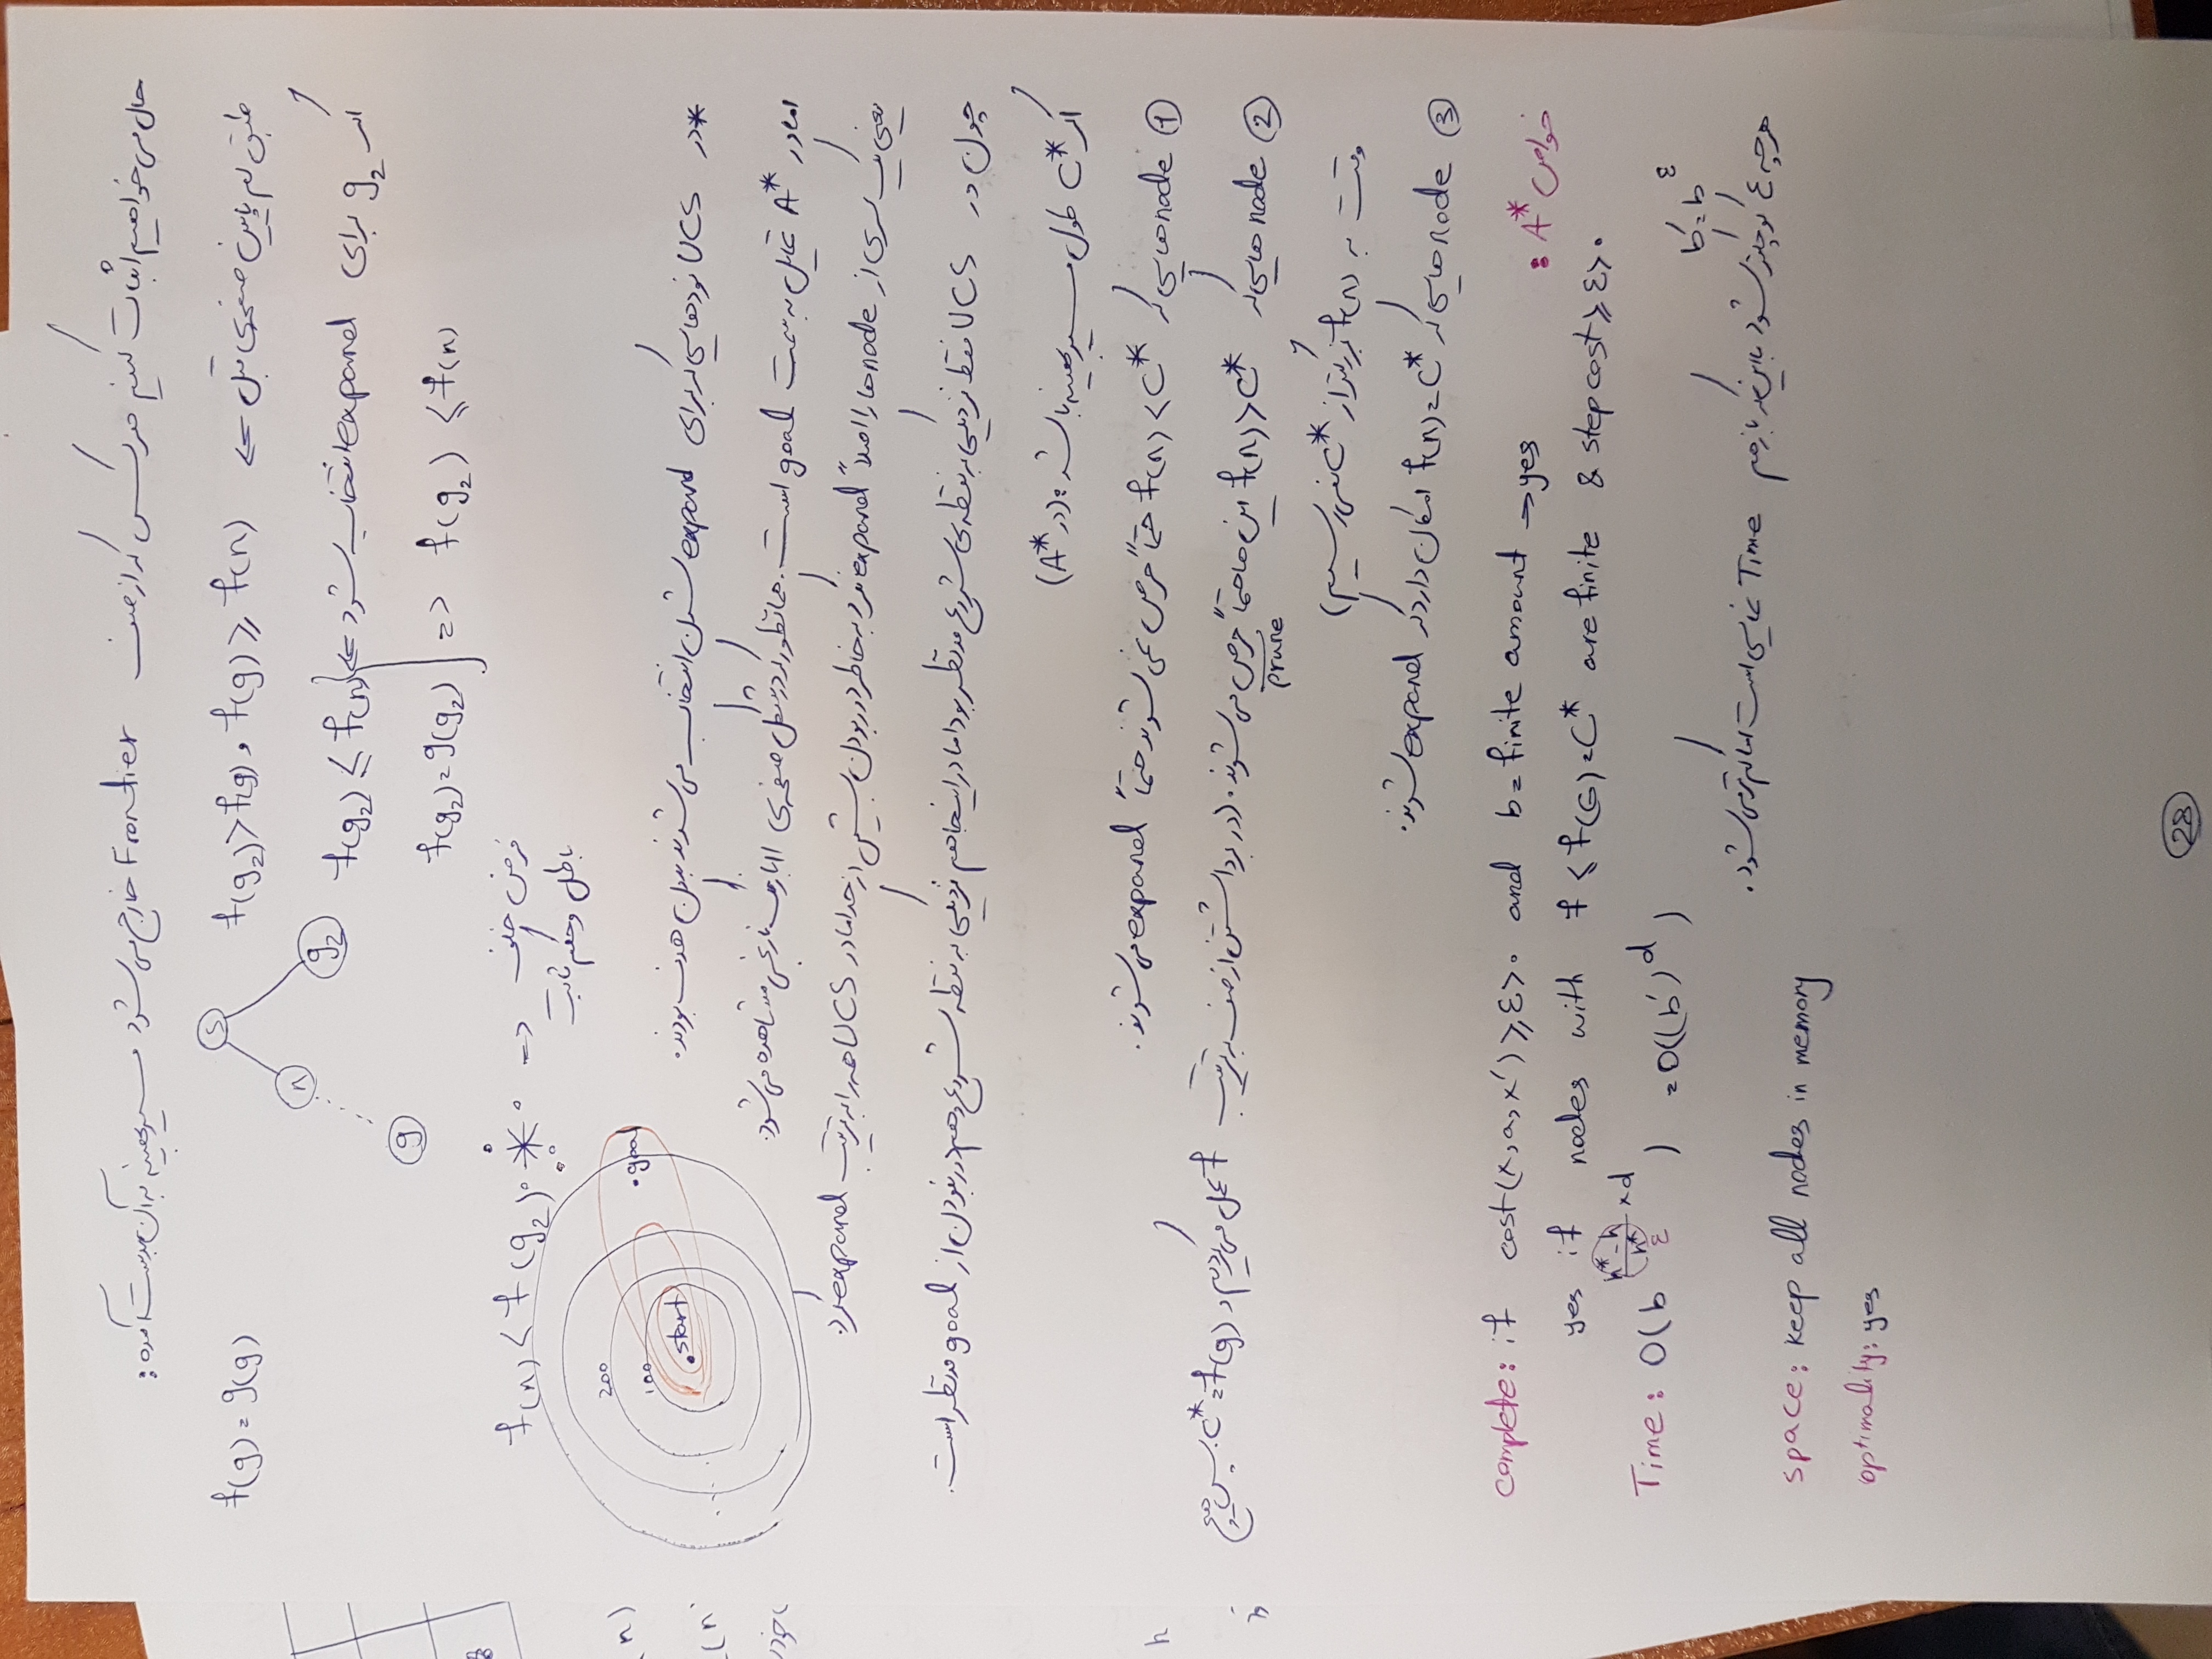 حال می‌خواهیم اثبات کنیم هرکس که از صف Frontier خارج می‌شود مسیر بهینه به آن بدست آمده:
طبق لم پایین صفحه‌ی قبل ⇐ f(g₂)>f(g) , f(g)⩾f(n)
f(g)=g(g)
s
n
g₂
g
اگر g₂ برای expand انتخاب شود ⇐ f(g₂) ⩽ f(n)
f(g₂)=g(g₂) => f(g₂) ⩽ f(n)
f(n) < f(g₂) ※ => فرض خلف
باطل و حکم ثابت
200
100
.start
.goal
*در UCS نودهایی که برای expand شدن انتخاب می‌شوند بدون هدف بودند.
اما در A* تمایل به سمت goal است. همانطور که در شکل صفحه‌ی 11 با رنگ نارنجی مشاهده می‌شود.
یعنی یک سری از nodeها را اصلاً expand نکرد به خاطر دور بودن بیش از حد اما در UCS همه را به ترتیب expand کرد.
چون در UCS فقط نزدیکی به نقطه‌ی شروع مدنظر بود اما در اینجا هم نزدیکی به نقطه شروع و هم دور نبودن از goal مدنظر است.
اگر C* طول مسیر بهینه باشد: (در A*)
① nodeهایی که f(n) < C* حتماً هرص نمی‌شوند حتماً expand می‌شوند.
② nodeهایی که f(n) > C* این ها حتماً هرص می‌شوند. (در برداشتن از صف به ترتیب f عمل می‌کردیم و C*=f(g). پس هیچ
prune
وقت به f(n) بزرگتر از C* نمی‌رسیم)
③ nodeهایی که f(n)=C* امکان دارد که expand شوند.
خواص A* :
complete: if cost(x,a,x′) ⩾ ε>0 and b= finite amount → yes
yes if nodes with f ⩽ f(G)=C* are finite & step cost ⩾ ε>0
Time: O(b^((h*-h)/h* × d)) = O((b′)^d)
ε
b′=b^ε
هرچه ε کوچکتر شود با اینکه بازهم Time نمایی است اما کم‌تر می‌شود.
space: keep all nodes in memory
optimality: yes
28